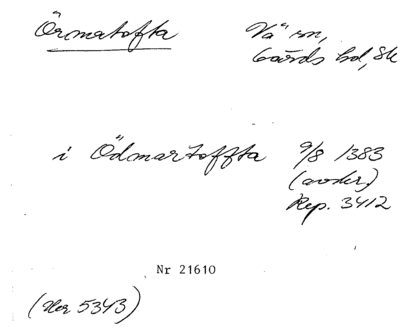 Örmatofta Vä sn,
Gärds hd, Sk
i Ödmartoffta 9/8 1383
(avskr)
Rep. 3412
Nr 21610
(Her 5343)